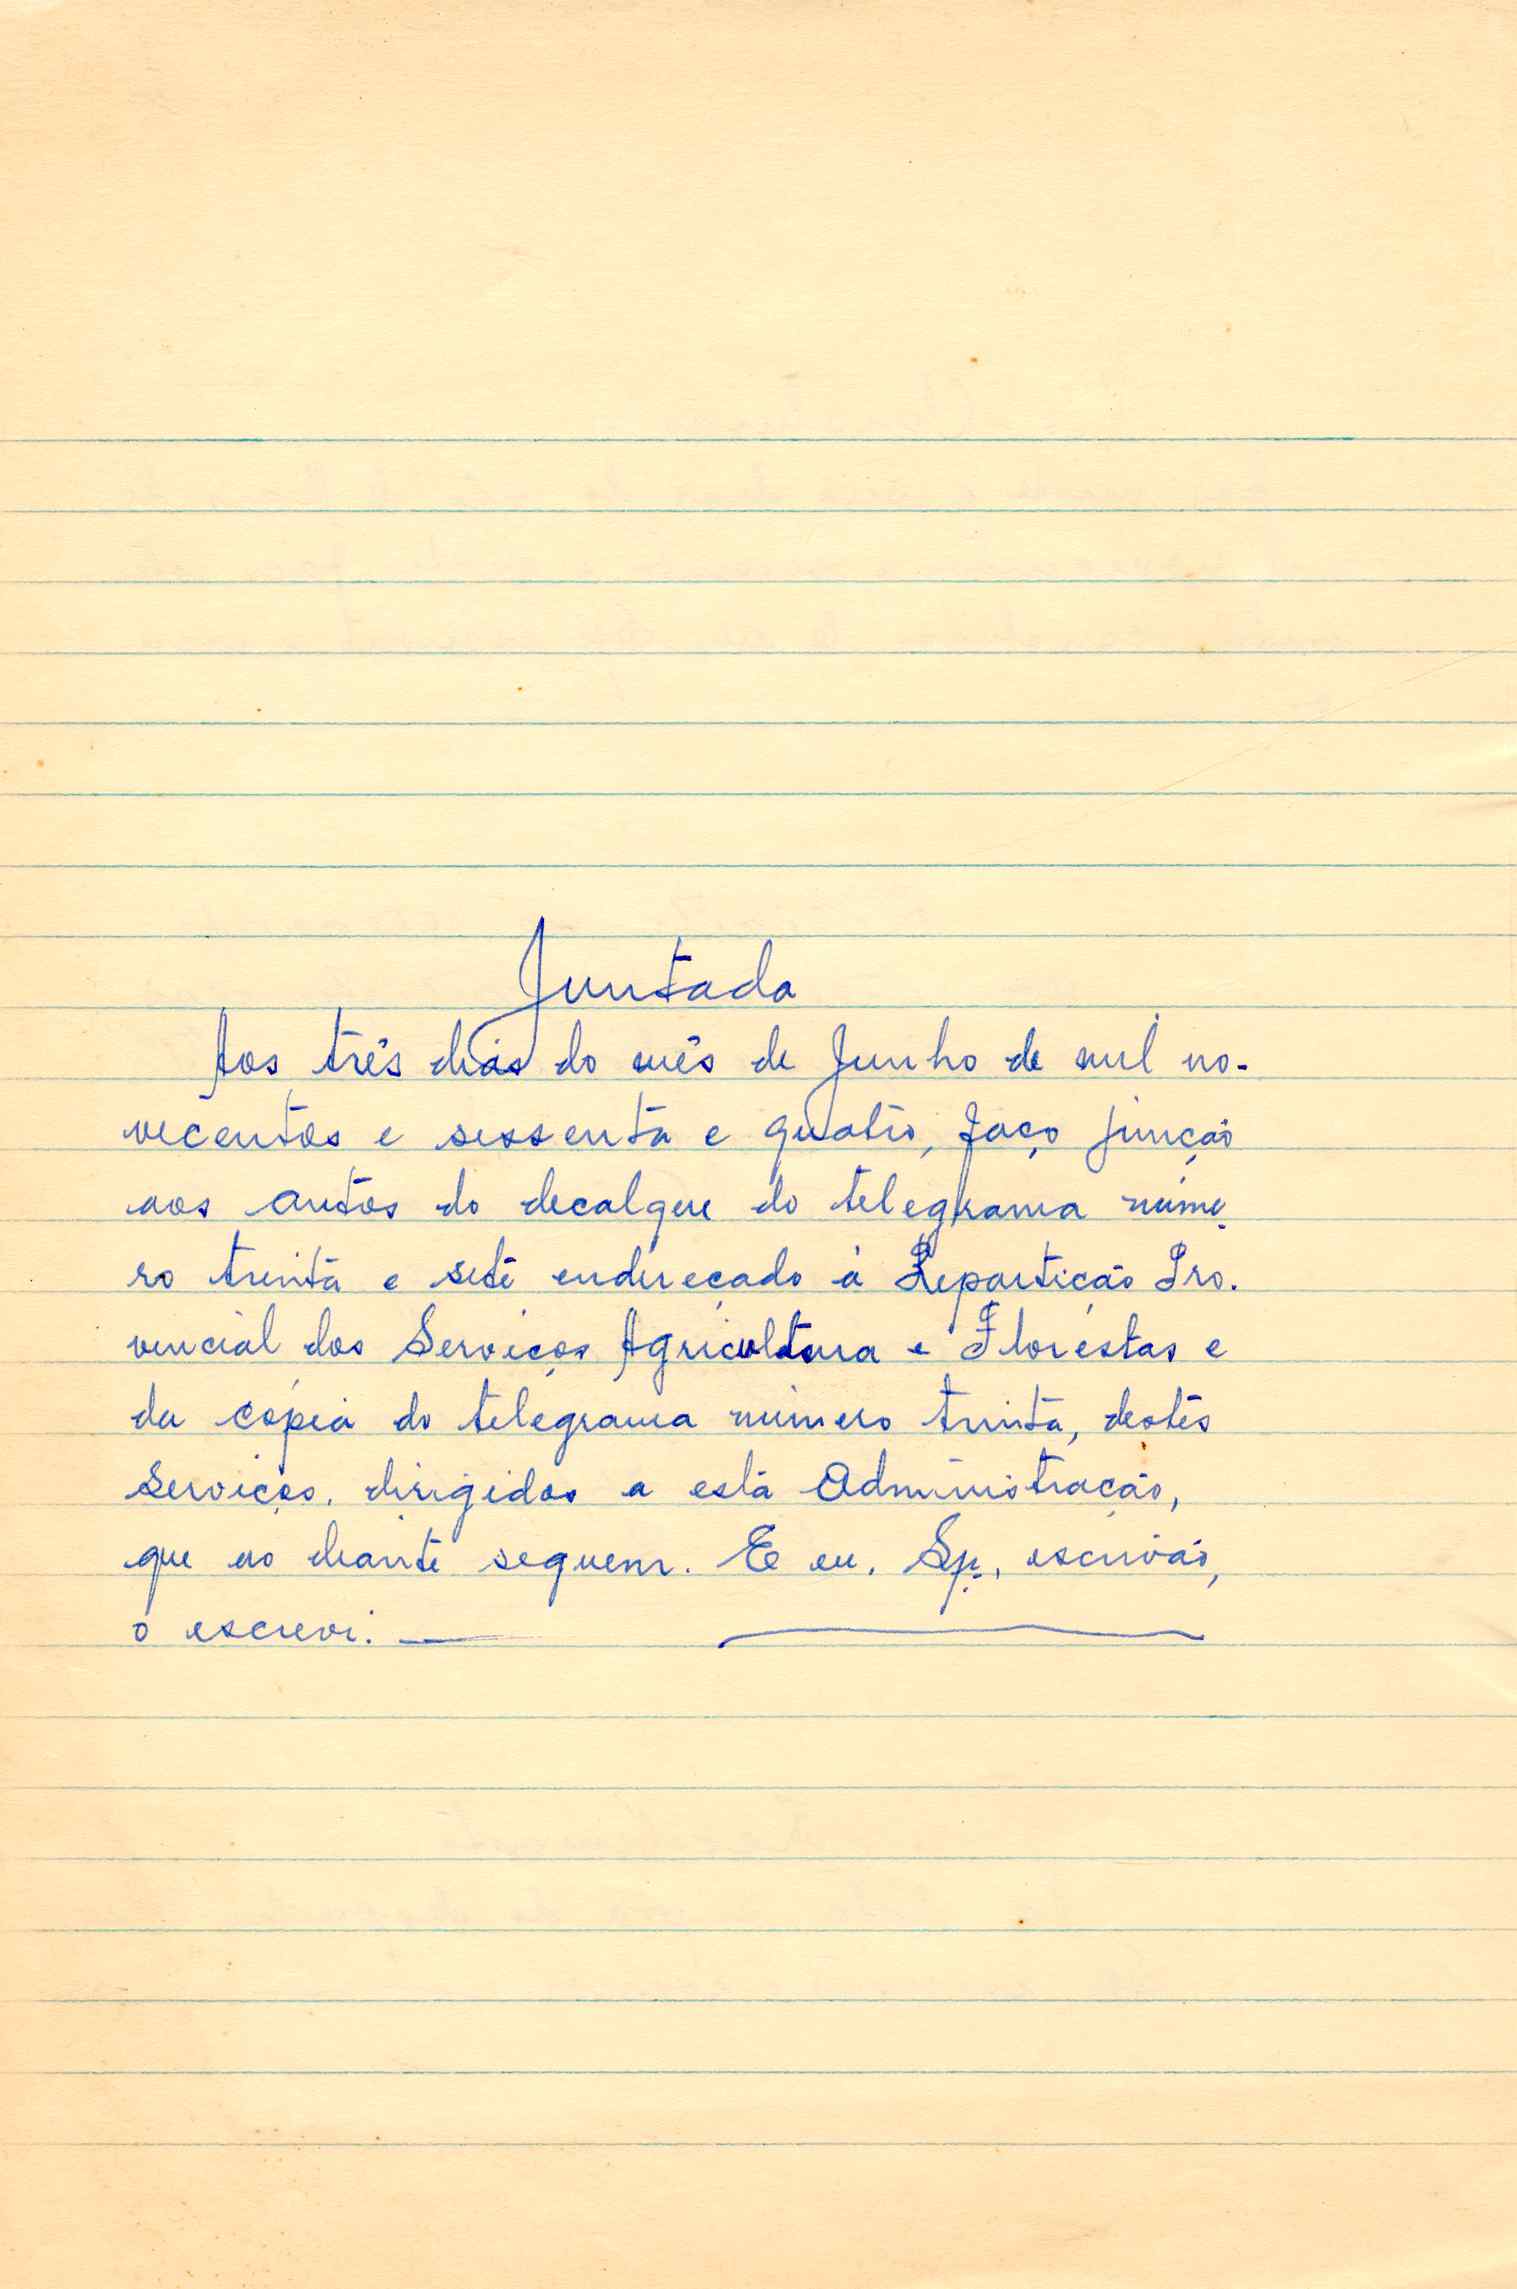 Juntada
Aos três dias do mês de Junho de mil no-
vecentos e sessenta e quatro, faço junção
aos autos do decalque do telegrama núme-
ro trinta e sete endereçado à Repartição Pro-
vincial dos Serviços Agricultura e Florestas e
da cópia do telegrama número trinta, destes
Serviços, dirigidos a esta Administração,
que ao diante seguem. E eu, escrivão,
o escrevi.